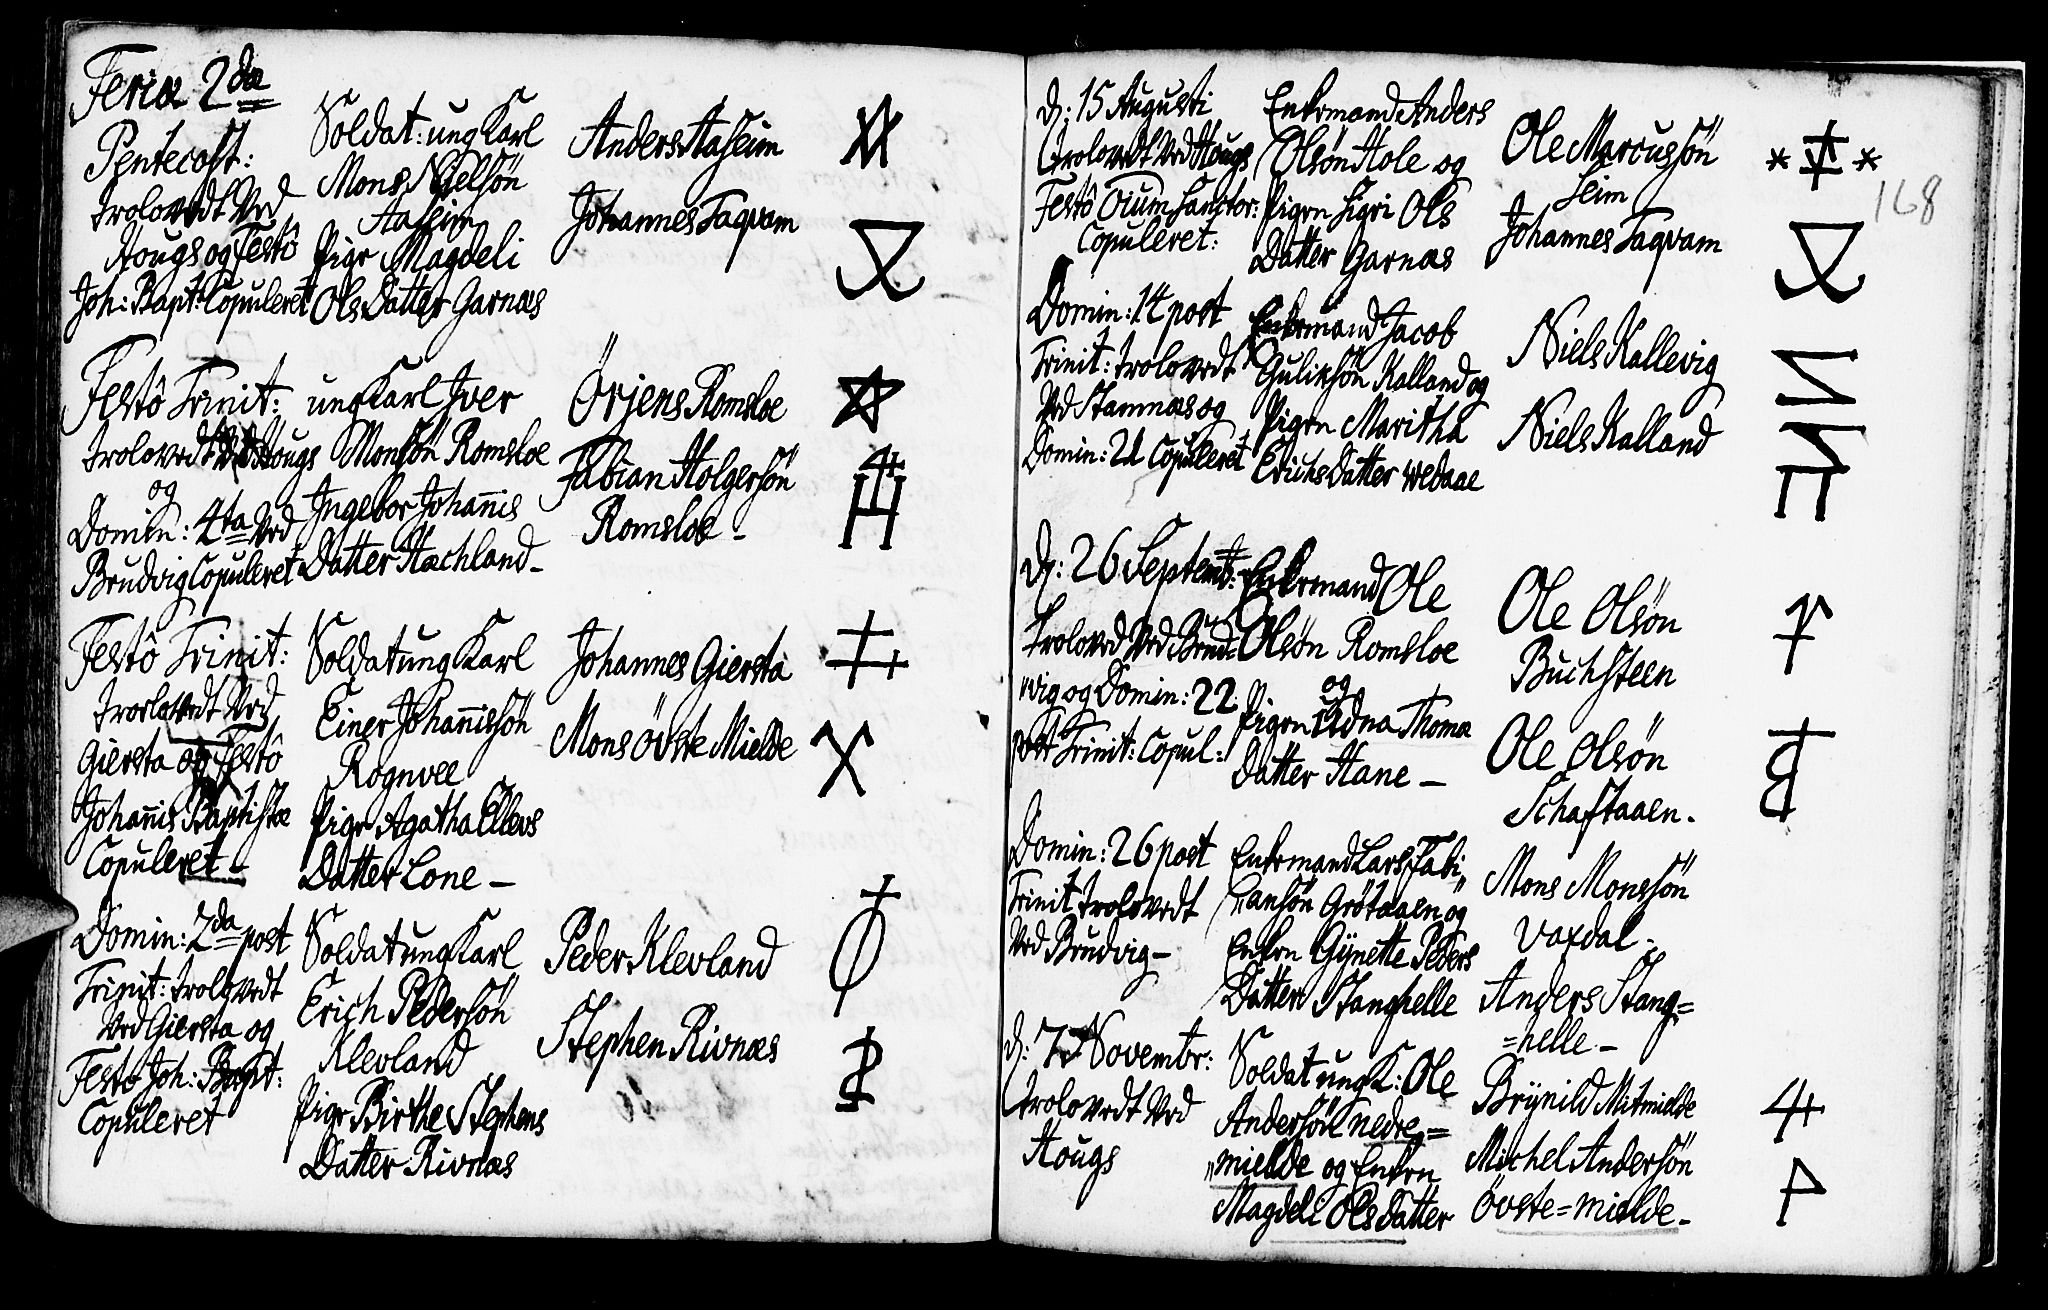 Feria 2da
Pentecost:
trolovedt ved
Hougs og Festô
Joh: Bapt: Copuleret
Soldat: ung Karl
Mons Nielsön
Aaseim
Pige Magdeli
Ols Datter Garnæs
Anders Aaseim
Johannes Taqvam
Festô Trinit:
trolovedt ved Hougs
og
Domin: 4ta ved
Brudvig Copuleret
ung Karl Iver
Monsön Romsloe
Ingebor Johañis
Datter Hæchland –
Örjens Romsloe
Fabian Holgersön
Romsloe –
Festô Trinit:
trolovedt ved
Giersta og Festô
Johañis Baptistæ
Copuleret –
Soldat ung Karl
Einer Johañissön
Rognvee
Pige Agatha Ellevs
Datter Lone –
Johannes Giersta
Mons Övste Mielde
Domin: 2da post
Trinit: trolovedt
ved Giersta og
Festô Joh: Bapt:
Copuleret
Soldat ung Karl
Erich Pedersön
Klevland
Pige Birthe Stephens
Datter Rivnæs
Peder Klevland
Stephen Rivnæs
168
D: 15 Augusti
trolovedt ved Hougs
Festô Oium Sanctor:
Copuleret:
Enkemand Anders
Olsön Hole og
Pigen Sigri Ols
Datter Garnæs
Ole Marcussön
Seim
Johannes Taqvam
Domin: 14 post
Trinit: trolovedt
ved Stamnæs og
Domin: 21 Copuleret
Enkemand Jacob
Guliksön Kalland og
Pigen Maritha
Erichs Datter wedaae
Niels Kallevig
Niels Kalland
D: 26 Septemb:
troloved ved Brud=
vig og Domin: 22
post Trinit: Copul:
Enkemand Ole
Olsön Romsloe
og
Pigen Udna Thomæ
Datter Hane –
Ole Olsön
Buchsteen
Ole Olsön
Schaftaaen.
Domin: 26 post
Trinit trolovedt
ved Brudvig –
Enkemand Lars Fabi„
„ansön Grötaaen og
Enken Gÿnette Peders
Datter Stanghelle
Mons Monssön
Vaxdal –
Anders Stang=
=helle –
D: 7 Novembr:
trolovedt ved
Hougs
Soldat ung K: Ole
Andersön nedre=
„mielde og Enken
Magdeli Ols Datter
Brÿnild Mitmielde
Michel Andersön
Övste=mielde –